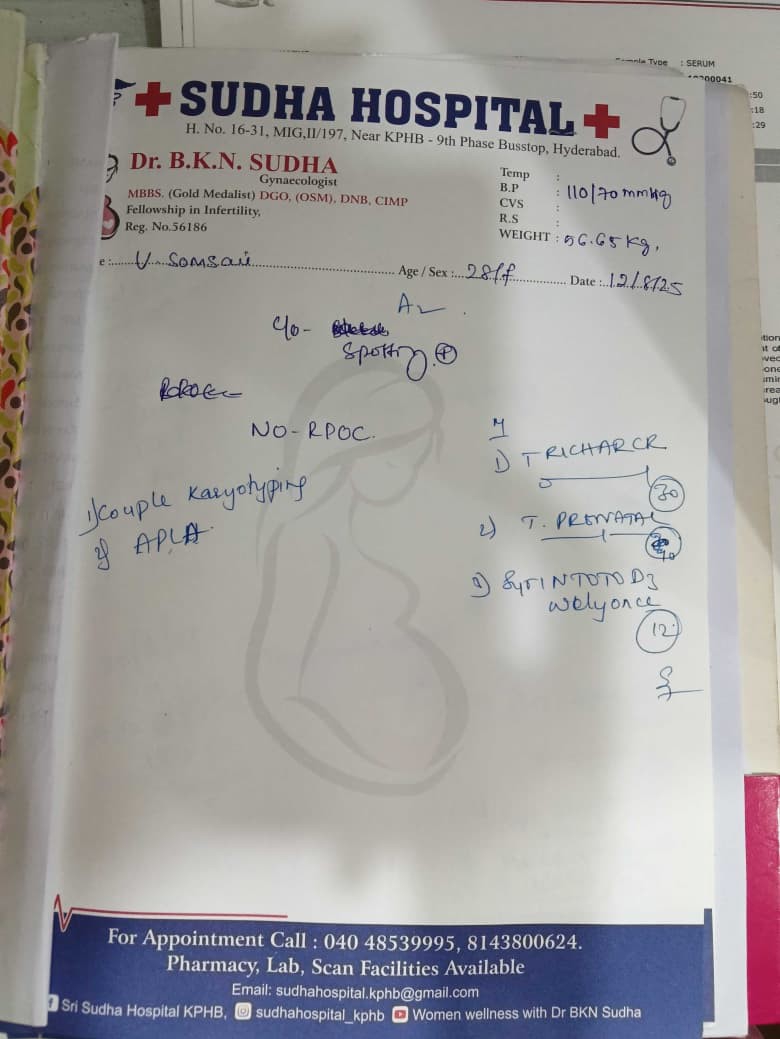 Sample Type : SERUM
:50
:18
:29
SUDHA HOSPITAL
H. No. 16-31, MIG,II/197, Near KPHB - 9th Phase Busstop, Hyderabad.
Dr. B.K.N. SUDHA
Gynaecologist
MBBS. (Gold Medalist) DGO, (OSM), DNB, CIMP
Fellowship in Infertility,
Reg. No.56186
Temp :
B.P : 110/70 mmHg
CVS :
R.S :
WEIGHT : 56.65 kg,
e : V. Somsai Age / Sex : 28/f Date : 12/8/25
A2
c/o -
Spotting. +
NO-RPOC.
1) Couple Karyotyping
2) APLA
1) TRICHARCR
30
2) T. PRENATAL
3) Syr INTOTO D3
welyonce
12
For Appointment Call : 040 48539995, 8143800624.
Pharmacy, Lab, Scan Facilities Available
Email: sudhahospital.kphb@gmail.com
Sri Sudha Hospital KPHB, sudhahospital_kphb Women wellness with Dr BKN Sudha